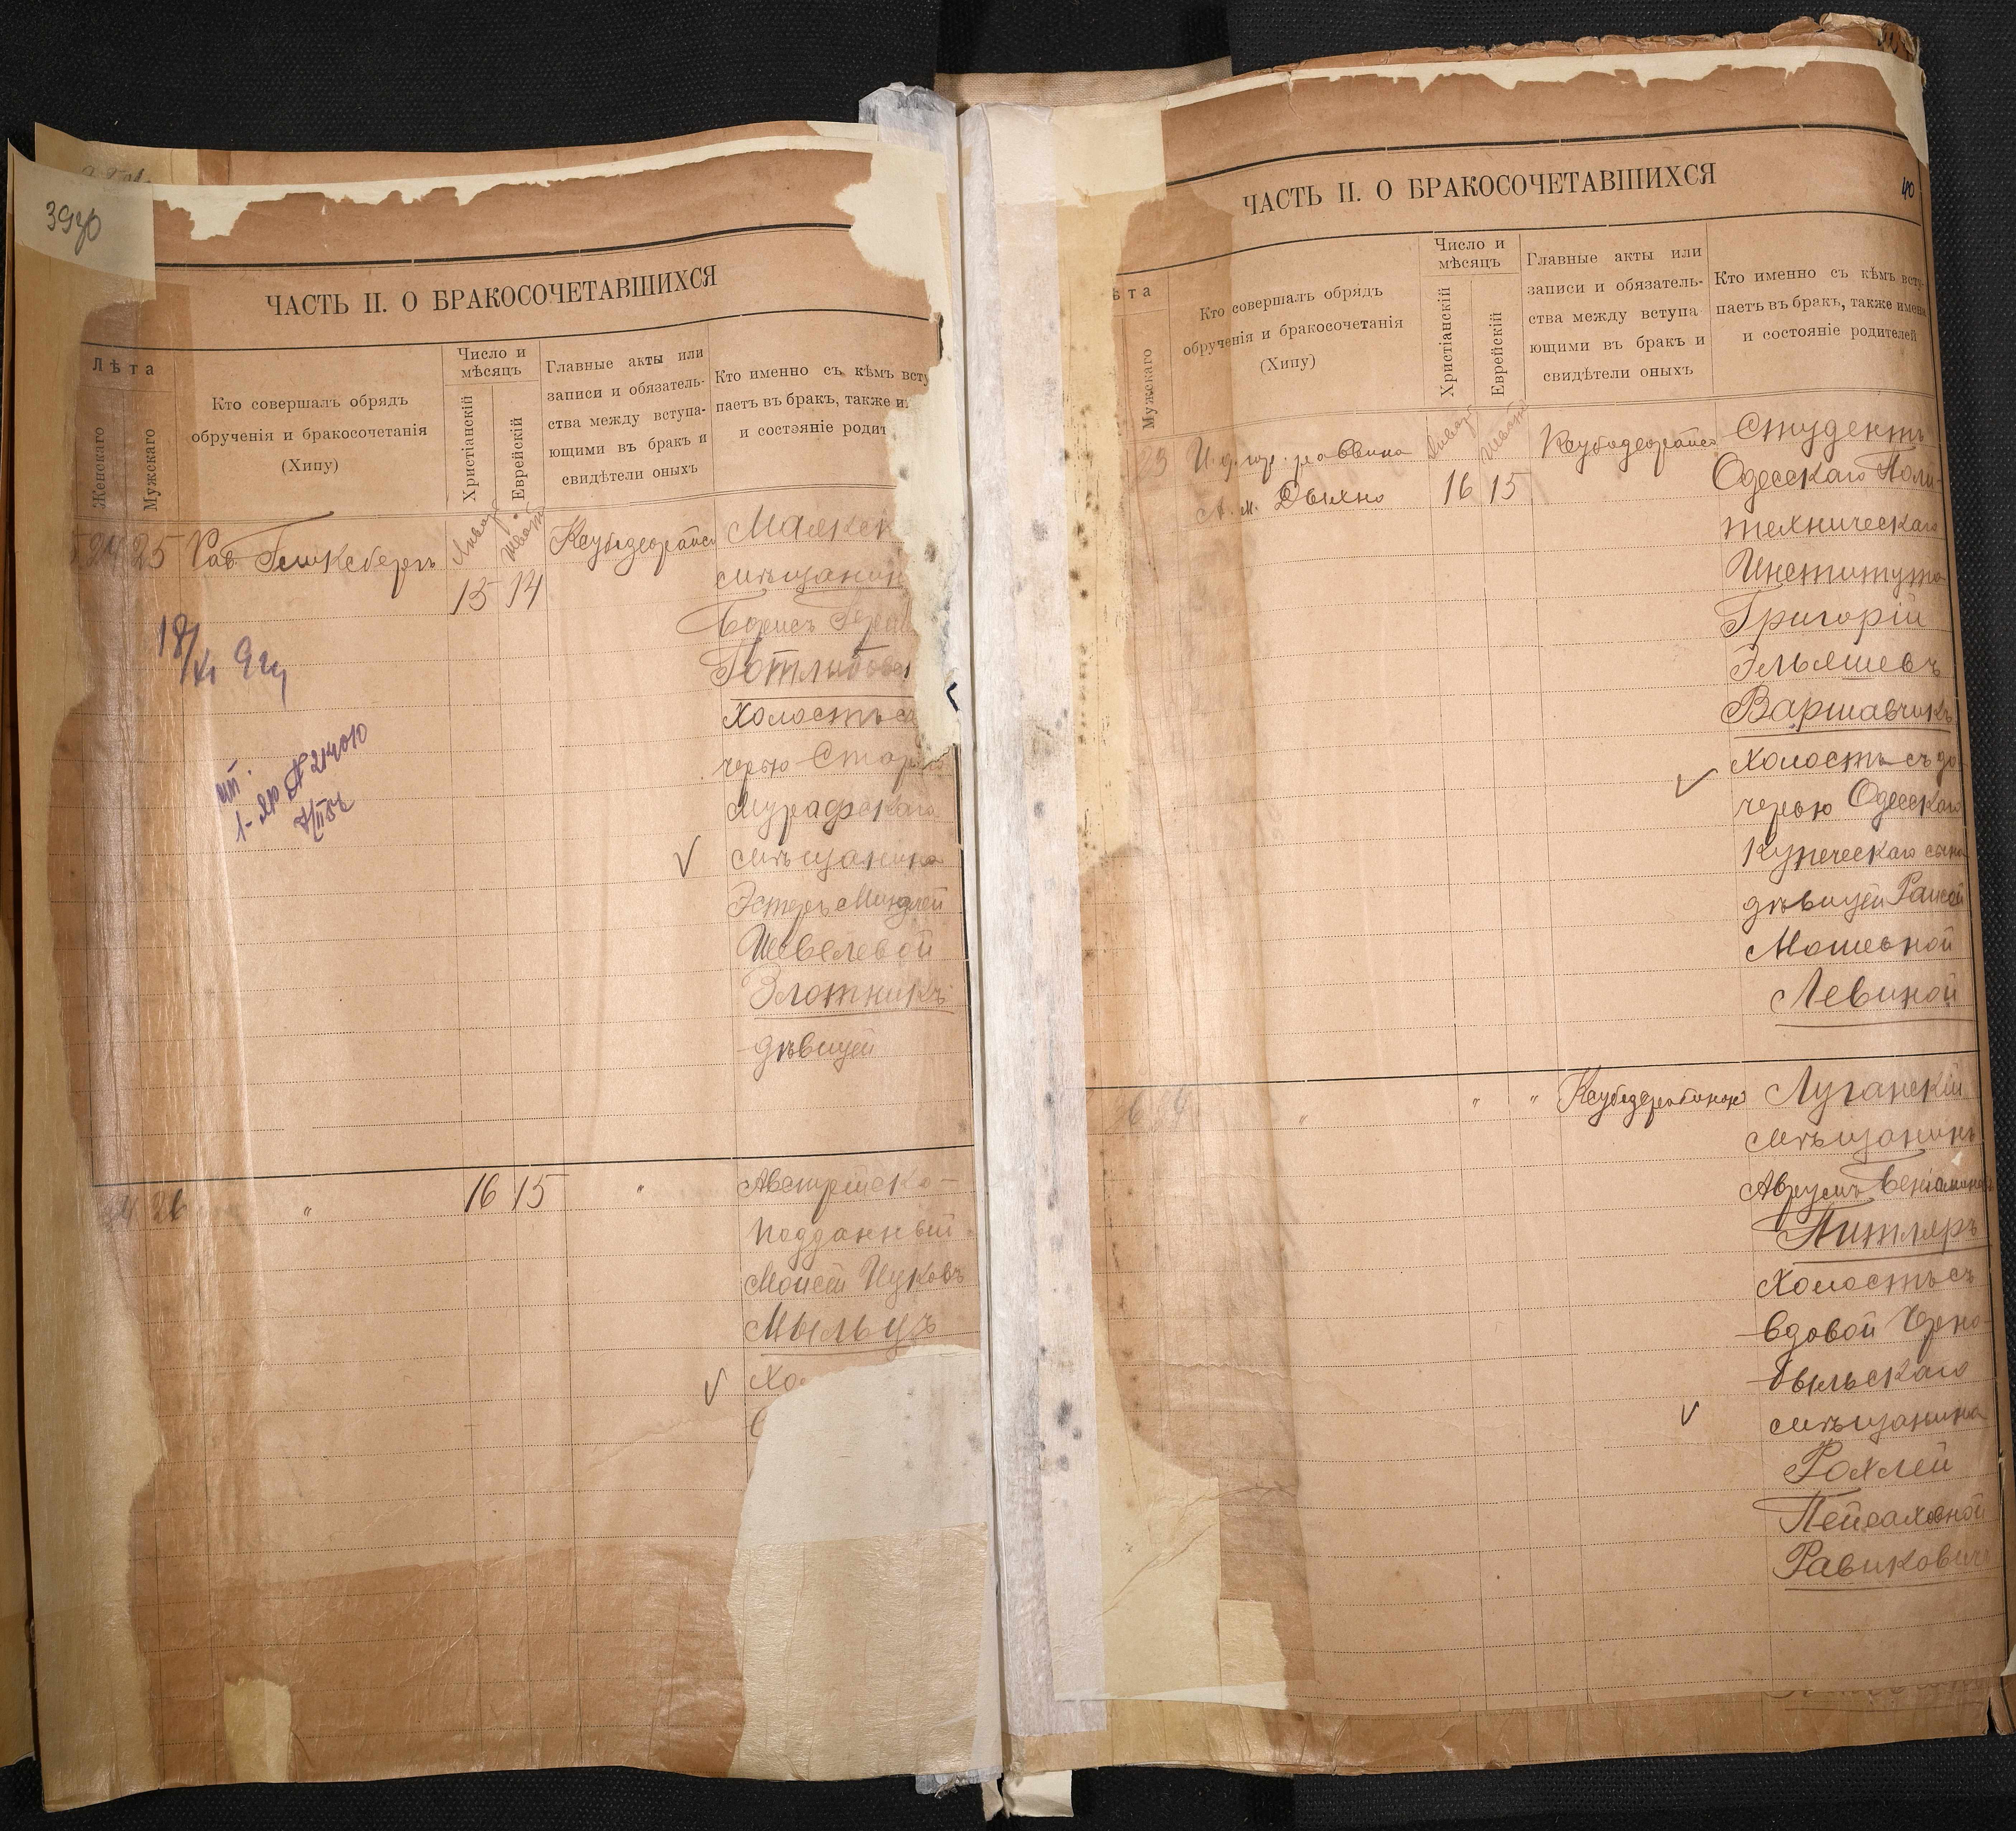 39об
ЧАСТЬ II. О БРАКОСОЧЕТАВШИХСЯ
Лѣта
Женскаго
Мужскаго
Кто совершалъ обрядъ
обрученія и бракосочетанія
(Хипу)
Число и
мѣсяцъ
Христіанскій
Еврейскій
Главные акты или
записи и обязатель-
ства между вступа-
ющими въ бракъ и
свидѣтели оныхъ
Кто именно съ кѣмъ всту
паетъ въ бракъ, также и
и состояніе родит
24 25
Рав.
Январ
Шват
15 14
мѣщанин
Борисъ
Готлибов
Холостъ съ
черью Старо
Мурафскаго
мѣщанина
Эстеръ Миндлей
Шевелевой
Злотникъ
дѣвицей
24 26 " 16 15 "
Австрійско-
подданный
Моисей Ицковъ
Мыльцъ
Хо
ЧАСТЬ II. О БРАКОСОЧЕТАВШИХСЯ
40
ѣта
Мужскаго
Кто совершалъ обрядъ
обрученія и бракосочетанія
(Хипу)
Число и
мѣсяцъ
Христіанскій
Еврейскій
Главные акты или
записи и обязатель-
ства между вступа-
ющими въ бракъ и
свидѣтели оныхъ
Кто именно съ кѣмъ всту
паетъ въ бракъ, также имена
и состояніе родителей
23
И. д. гор. раввина
А. М. Дыхно
Январ
Шват
16 15
Студентъ
Одесскаго Поли-
техническаго
Института
Григорій
Эльяшевъ
Варшавчикъ
Холостъ съ до
черью Одесскаго
Купеческаго сына
дѣвицей Раисой
Мошевной
Левиной
" " "
Луганскій
мѣщанинъ
Аврумъ Веніаминовъ
Питляръ
Холостъ съ
вдовой Черно
быльскаго
мѣщанина
Рохлей
Пейсаховной
Равикович